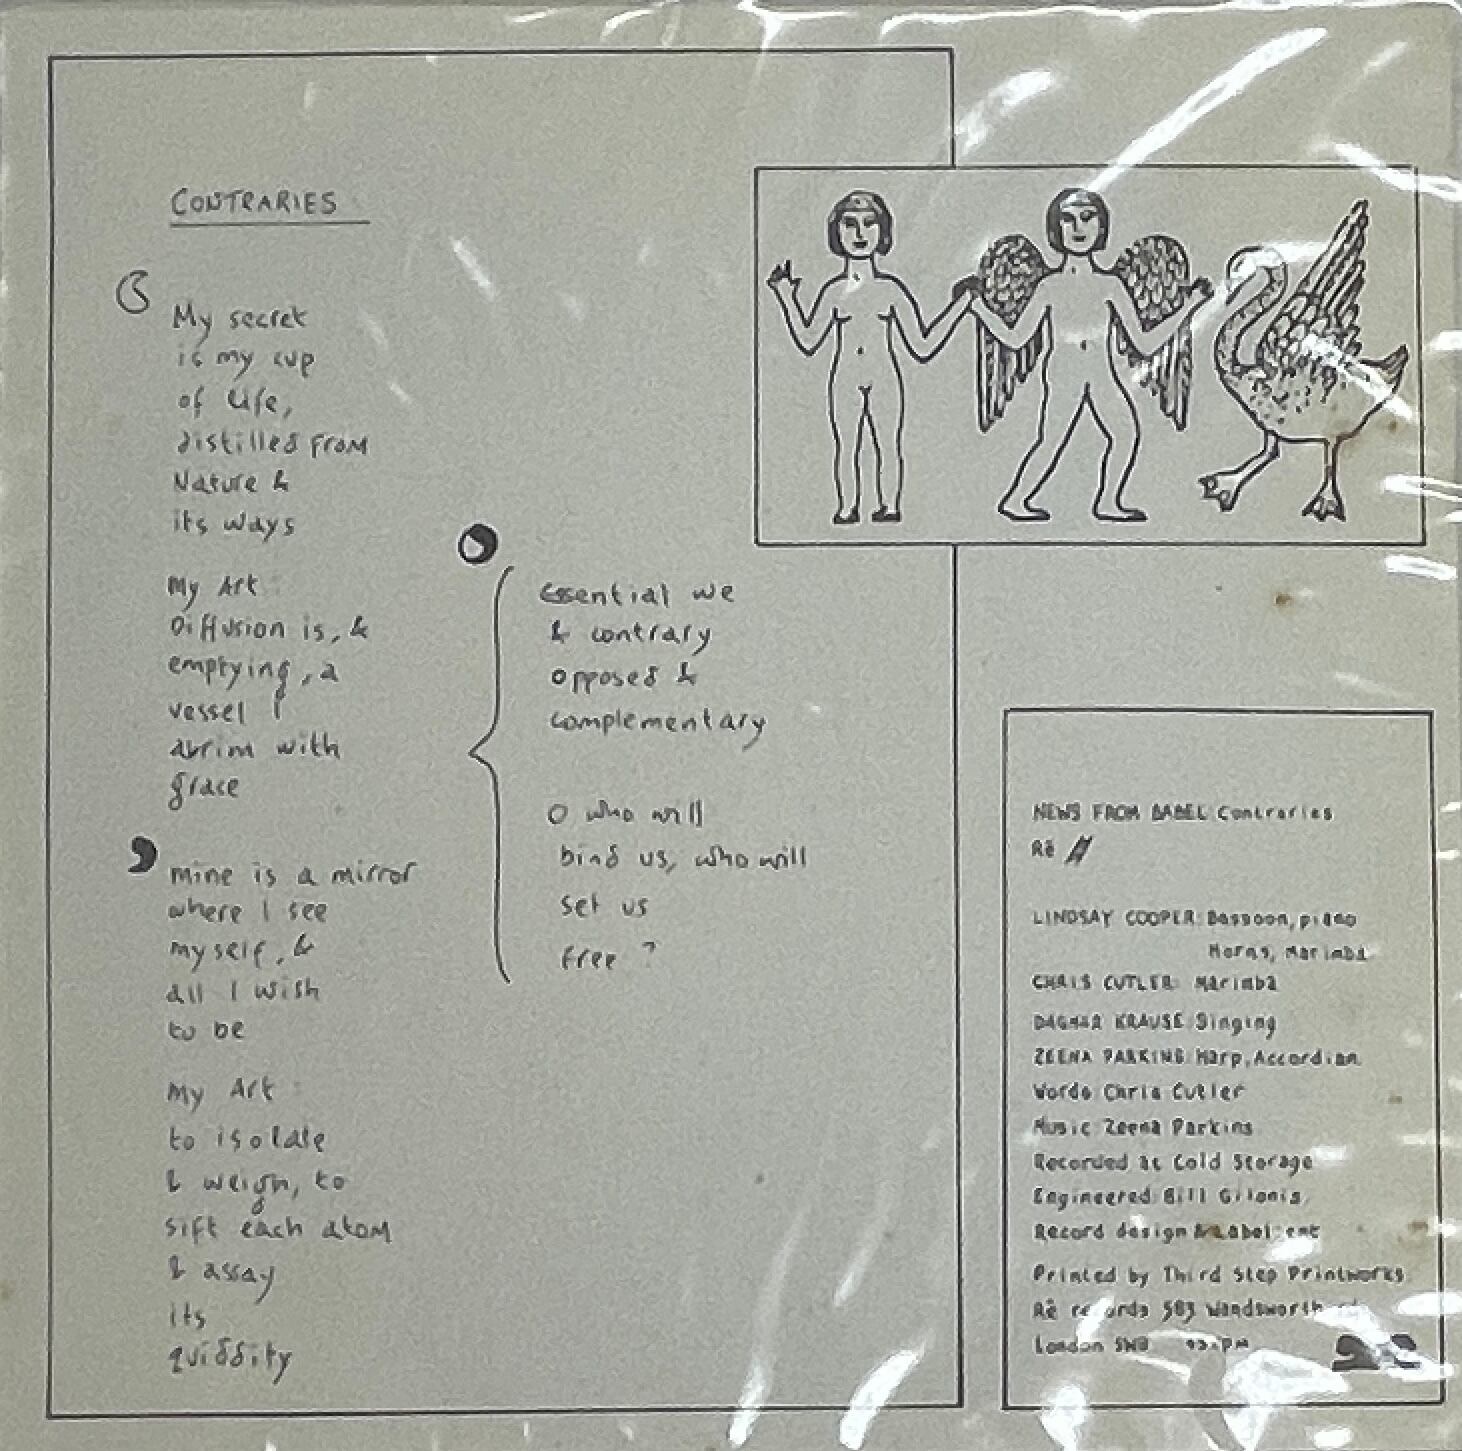 CONTRARIES
My secret
is my cup
of life,
distilled from
Nature &
its ways
My Art
Diffusion is, &
emptying, a
vessel I
abrim with
grace
mine is a mirror
where I see
myself, &
all I wish
to be
My Art
to isolate
& weigh, to
sift each atom
& assay
its
quiddity
Essential we
& contrary
opposed &
complementary
O who will
bind us, who will
set us
free ?
NEWS FROM BABEL Contraries
Rē
LINDSAY COOPER: Bassoon, piano
Horns, Marimba
CHRIS CUTLER: Marimba
DAGMAR KRAUSE: Singing
ZEENA PARKINS: Harp, Accordian
Words Chris Cutler
Music Zeena Parkins
Recorded at Cold Storage
Engineered: Bill Gilonis
Record design & Label: emt
Printed by Third Step Printworks
Rē records 583 Wandsworth rd
London SW8 45 rpm